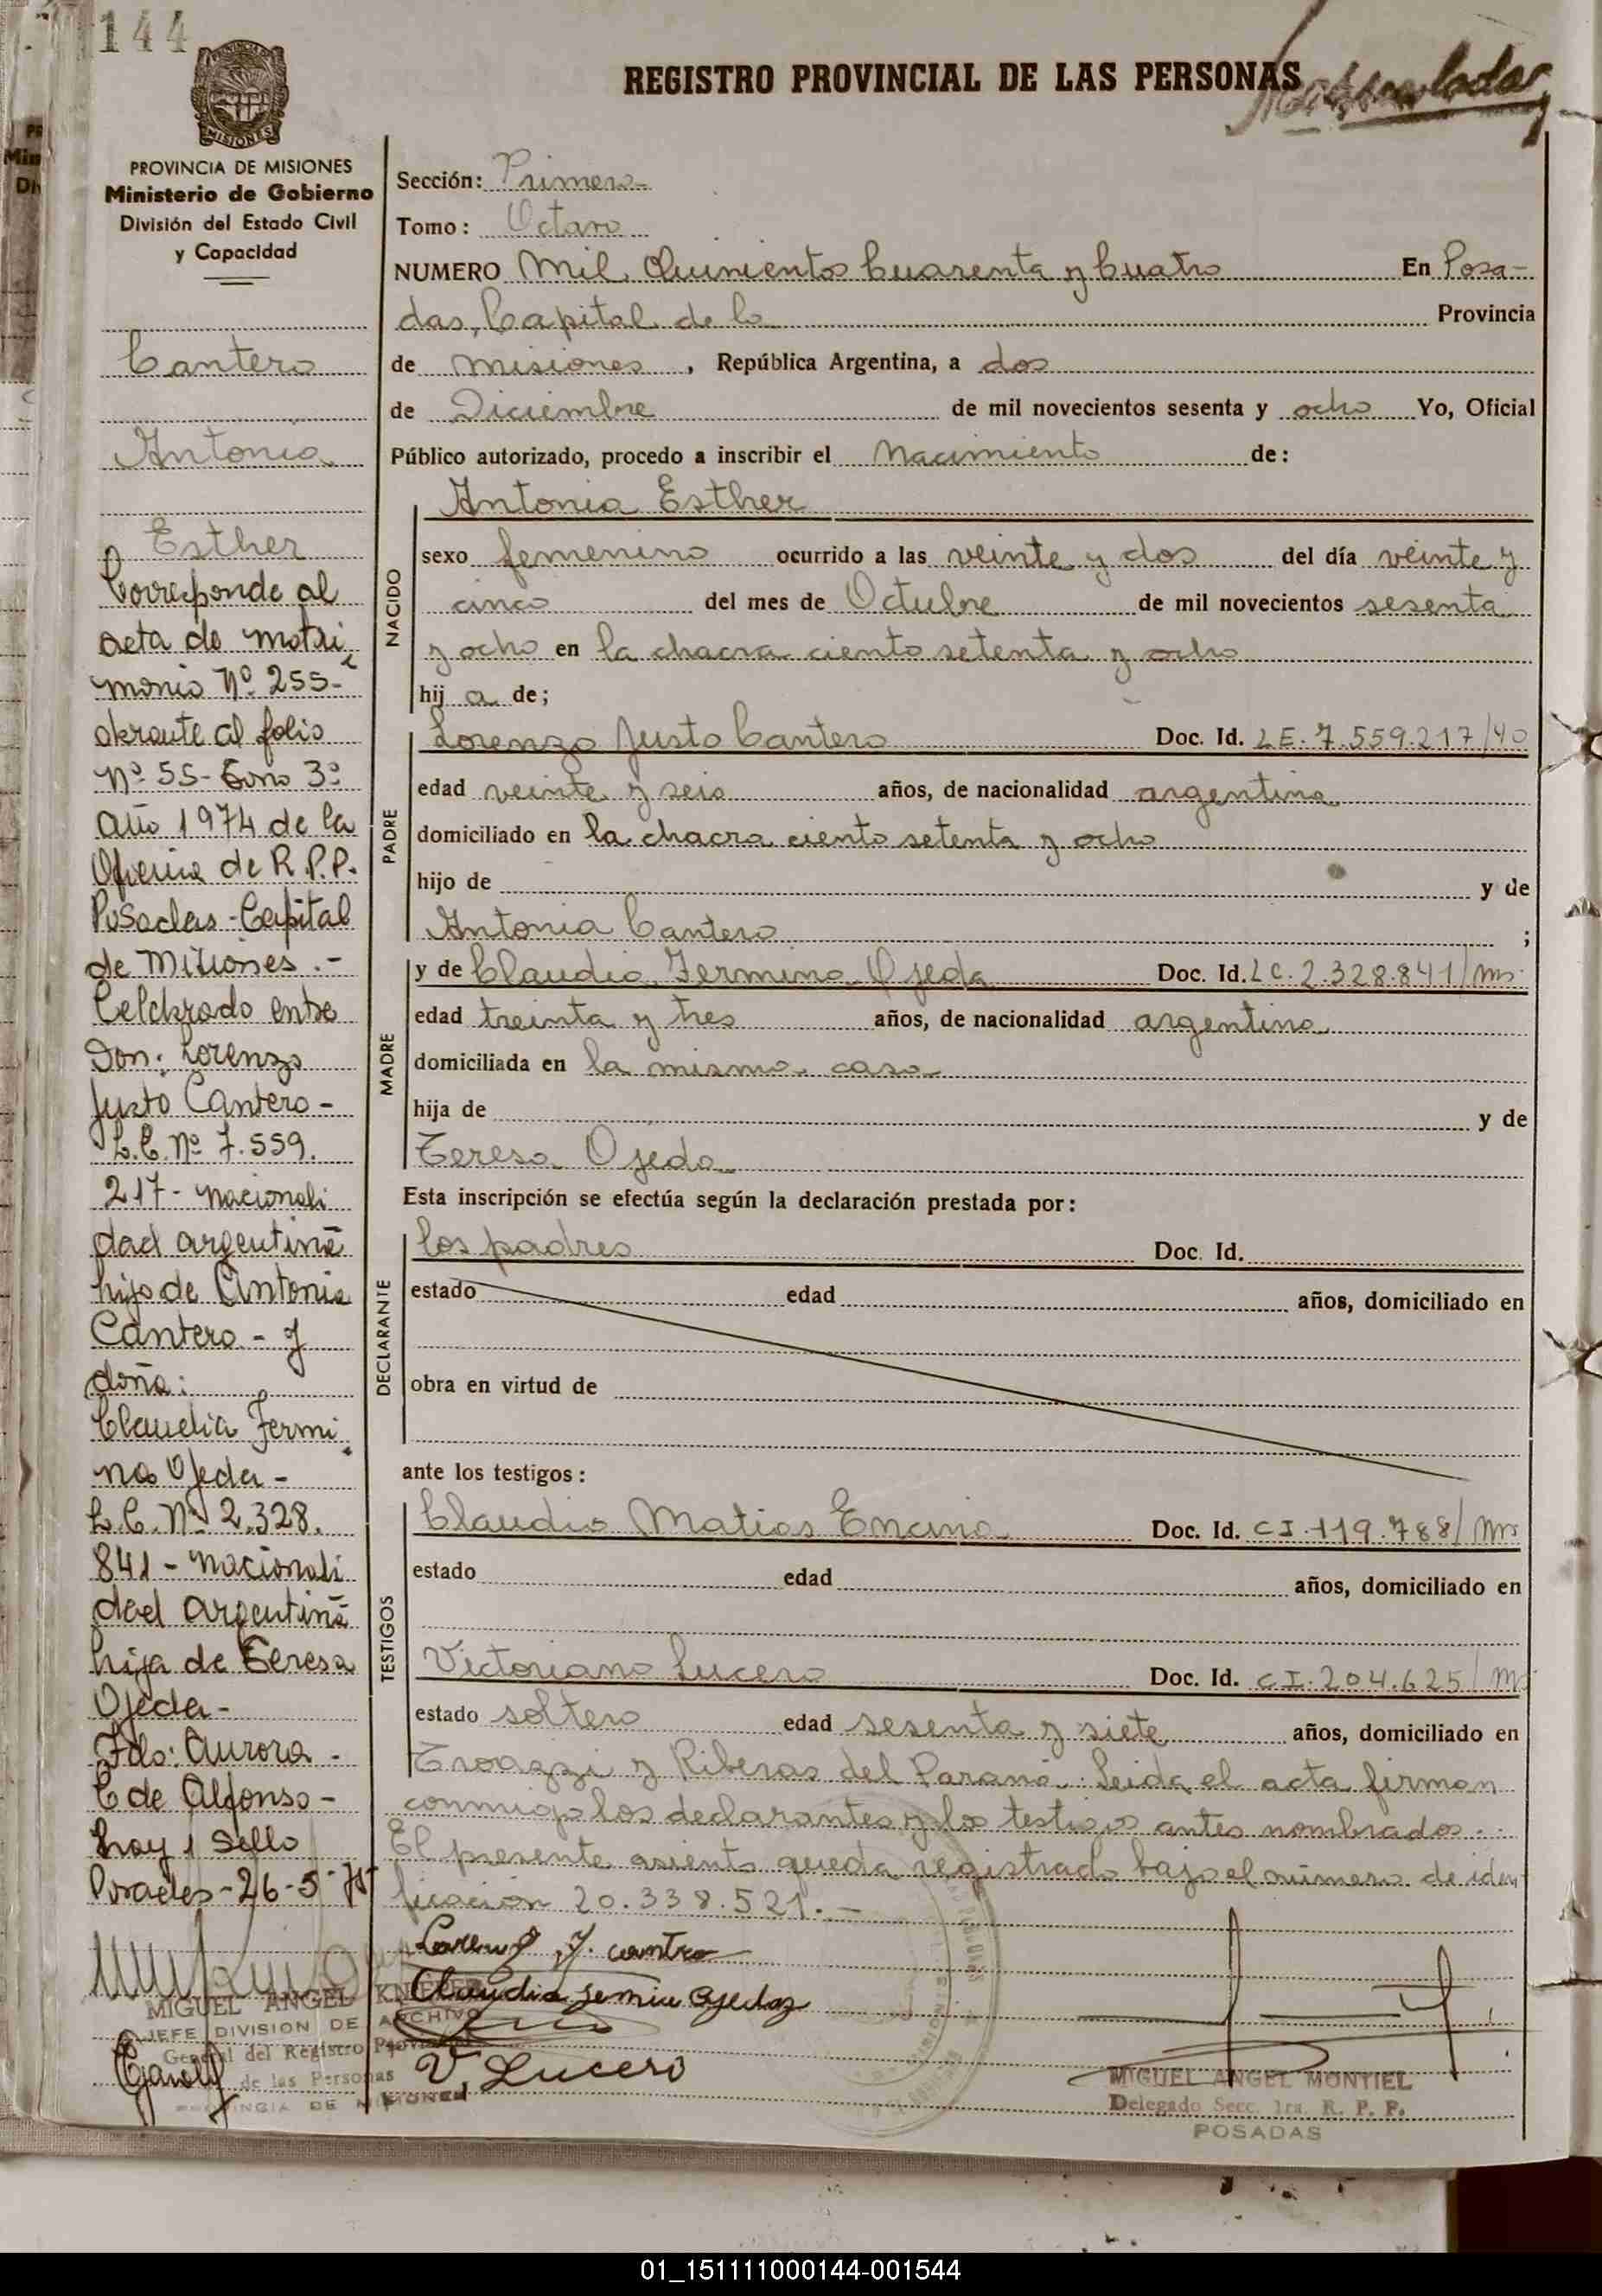 144
REGISTRO PROVINCIAL DE LAS PERSONAS
MISIONES
PROVINCIA DE MISIONES
Ministerio de Gobierno
División del Estado Civil
y Capacidad
Cantero
Antonia
Esther
Corresponde al
acta de matri
monio Nº 255-
obrante al folio
Nº 55- Tomo 3º
Año 1974 de la
Oficina de R.P.P.
Posadas-Capital
de Misiones.-
Celebrado entre
Don: Lorenzo
Justo Cantero-
L.E. Nº 7.559.
217- nacionali
dad argentina
hijo de Antonia
Cantero- y
doña:
Claudia Fermi
na Ojeda-
L.C. Nº 2.328.
841- nacionali
dad argentina
hija de Teresa
Ojeda-
Fdo: Aurora-
C de Alfonso-
hay 1 Sello
Posadas-26-5-75
MIGUEL ANGEL
JEFE DIVISION DE ARCHIVO
General del Registro Provincial
de las Personas
PROVINCIA DE MISIONES
Sección: Primera-
Tomo: Octavo
NUMERO Mil Quinientos Cuarenta y Cuatro En Posa-
das, Capital de la Provincia
de Misiones, República Argentina, a dos
de Diciembre de mil novecientos sesenta y ocho Yo, Oficial
Público autorizado, procedo a inscribir el Nacimiento de:
Antonia Esther
NACIDO
sexo femenino ocurrido a las veinte y dos del día veinte y
cinco del mes de Octubre de mil novecientos sesenta
y ocho en la chacra ciento setenta y ocho
hij a de;
PADRE
Lorenzo Justo Cantero Doc. Id. LE. 7.559.217/40
edad veinte y seis años, de nacionalidad argentina
domiciliado en la chacra ciento setenta y ocho
hijo de y de
Antonia Cantero ;
MADRE
y de Claudia Fermina Ojeda Doc. Id. LC. 2.328.841/ms
edad treinta y tres años, de nacionalidad argentina
domiciliada en la misma casa
hija de y de
Teresa Ojeda
Esta inscripción se efectúa según la declaración prestada por:
DECLARANTE
los padres Doc. Id.
estado edad años, domiciliado en
obra en virtud de
ante los testigos:
TESTIGOS
Claudio Matias Encina Doc. Id. CI. 119.788/ms
estado edad años, domiciliado en
Victoriano Lucero Doc. Id. CI. 204.625/ms
estado soltero edad sesenta y siete años, domiciliado en
y Riberas del Paraná. Leida el acta firman
conmigo los declarantes y los testigos antes nombrados..
El presente asiento queda registrado bajo el número de iden
ficación 20.338.521.-
Lorenzo J. cantero
Claudia Fermin Ojeda
V. Lucero
MIGUEL ANGEL MONTIEL
Delegado Secc. 1ra. R. P. P.
POSADAS
01_151111000144-001544